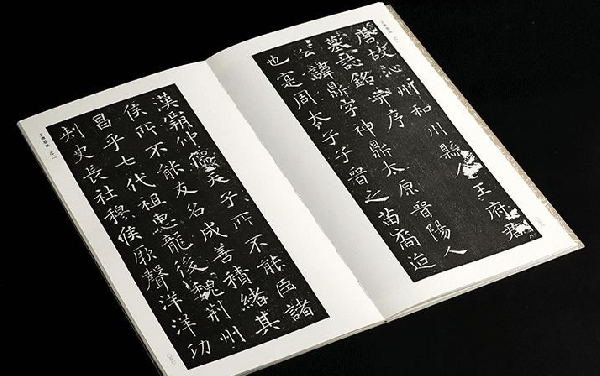 唐故沁州和川縣令王府君
墓誌銘并序
公諱鼎字神鼎太原晉陽人
也寔周太子晉之苗裔迨
漢霸冲天子所不能臣諸
侯所不能友名成善積緒其
昌乎七代祖惠龍後魏荊州
刺史長社穆侯厥聲洋洋功